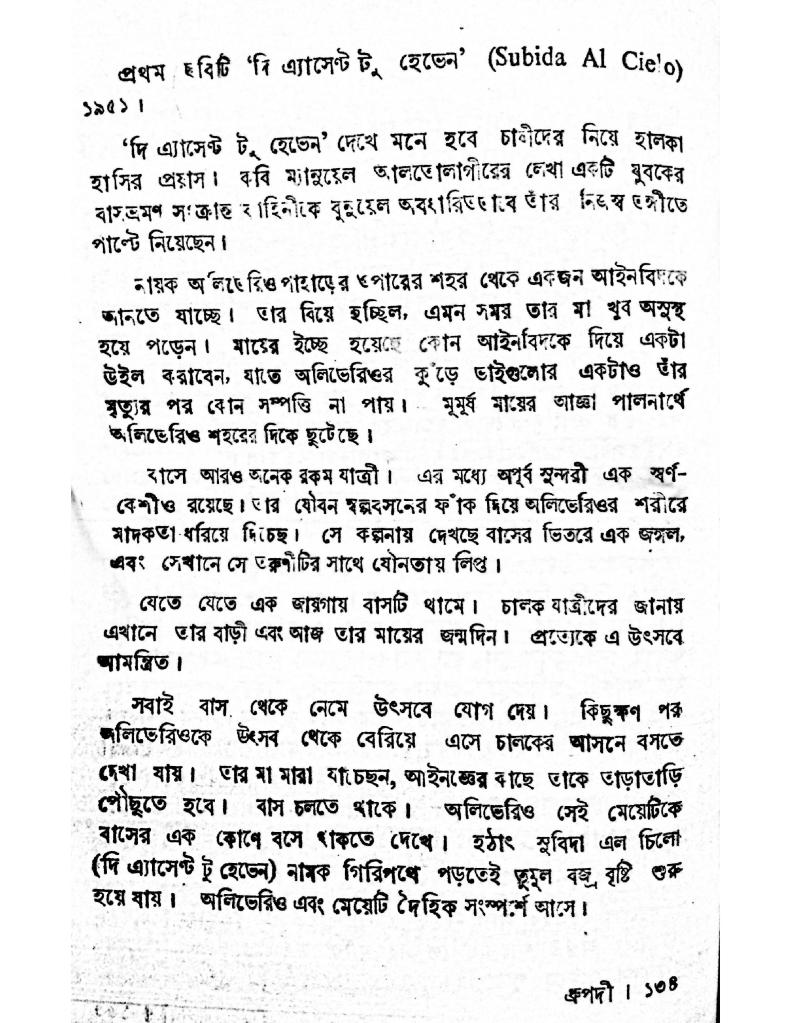 প্রথম ছবিটি ‘দি এ্যাসেন্ট টু হেভেন’ (Subida Al Cielo)
১৯৫১।
‘দি এ্যাসেন্ট টু হেভেন’ দেখে মনে হবে চাষীদের নিয়ে হালকা
হাসির প্রয়াস। কবি ম্যানুয়েল আলতোলাগীরের লেখা একটি যুবকের
বাসভ্রমণ সংক্রান্ত কাহিনীকে বুনুয়েল অবধারিতভাবে তাঁর নিজস্ব ভঙ্গীতে
পাল্টে নিয়েছেন।
নায়ক অলিভেরিও পাহাড়ের ওপারের শহর থেকে একজন আইনবিদকে
আনতে যাচ্ছে। তার বিয়ে হচ্ছিল, এমন সময় তার মা খুব অসুস্থ
হয়ে পড়েন। মায়ের ইচ্ছে হয়েছে কোন আইনবিদকে দিয়ে একটা
উইল করাবেন, যাতে অলিভেরিওর কুঁড়ে ভাইগুলোর একটাও তাঁর
মৃত্যুর পর কোন সম্পত্তি না পায়। মূমূর্ষ মায়ের আজ্ঞা পালনার্থে
অলিভেরিও শহরের দিকে ছুটেছে।
বাসে আরও অনেক রকম যাত্রী। এর মধ্যে অপূর্ব সুন্দরী এক স্বর্ণ-
কেশীও রয়েছে। তার যৌবন স্বল্পবসনের ফাঁক দিয়ে অলিভেরিওর শরীরে
মাদকতা ধরিয়ে দিচ্ছে। সে কল্পনায় দেখছে বাসের ভিতরে এক জঙ্গল,
এবং সেখানে সে তরুণীটির সাথে যৌনতায় লিপ্ত।
যেতে যেতে এক জায়গায় বাসটি থামে। চালক যাত্রীদের জানায়
এখানে তার বাড়ী এবং আজ তার মায়ের জন্মদিন। প্রত্যেকে এ উৎসবে
আমন্ত্রিত।
সবাই বাস থেকে নেমে উৎসবে যোগ দেয়। কিছুক্ষণ পর
অলিভেরিওকে উৎসব থেকে বেরিয়ে এসে চালকের আসনে বসতে
দেখা যায়। তার মা মারা যাচ্ছেন, আইনজ্ঞের কাছে তাকে তাড়াতাড়ি
পৌঁছুতে হবে। বাস চলতে থাকে। অলিভেরিও সেই মেয়েটিকে
বাসের এক কোণে বসে থাকতে দেখে। হঠাৎ সুবিদা এল চিলো
(দি এ্যাসেন্ট টু হেভেন) নামক গিরিপথে পড়তেই তুমুল বজ্র বৃষ্টি শুরু
হয়ে যায়। অলিভেরিও এবং মেয়েটি দৈহিক সংস্পর্শে আসে।
ধ্রুপদী। ১৩৪